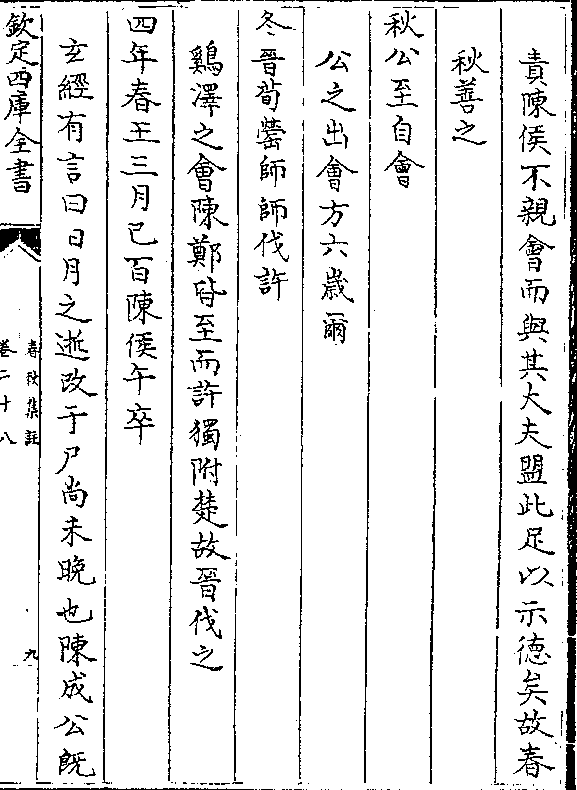 責陳侯不親會而與其大夫盟此足以示德矣故春
秋善之
秋公至自會
公之出會方六歳爾
冬晉荀罃帥師伐許
鷄澤之會陳鄭皆至而許獨附楚故晉伐之
四年春王三月己酉陳侯午卒
玄經有言曰日月之逝改于尸尚未晚也陳成公既
欽定四庫全書
春秋集註
卷二十八
九